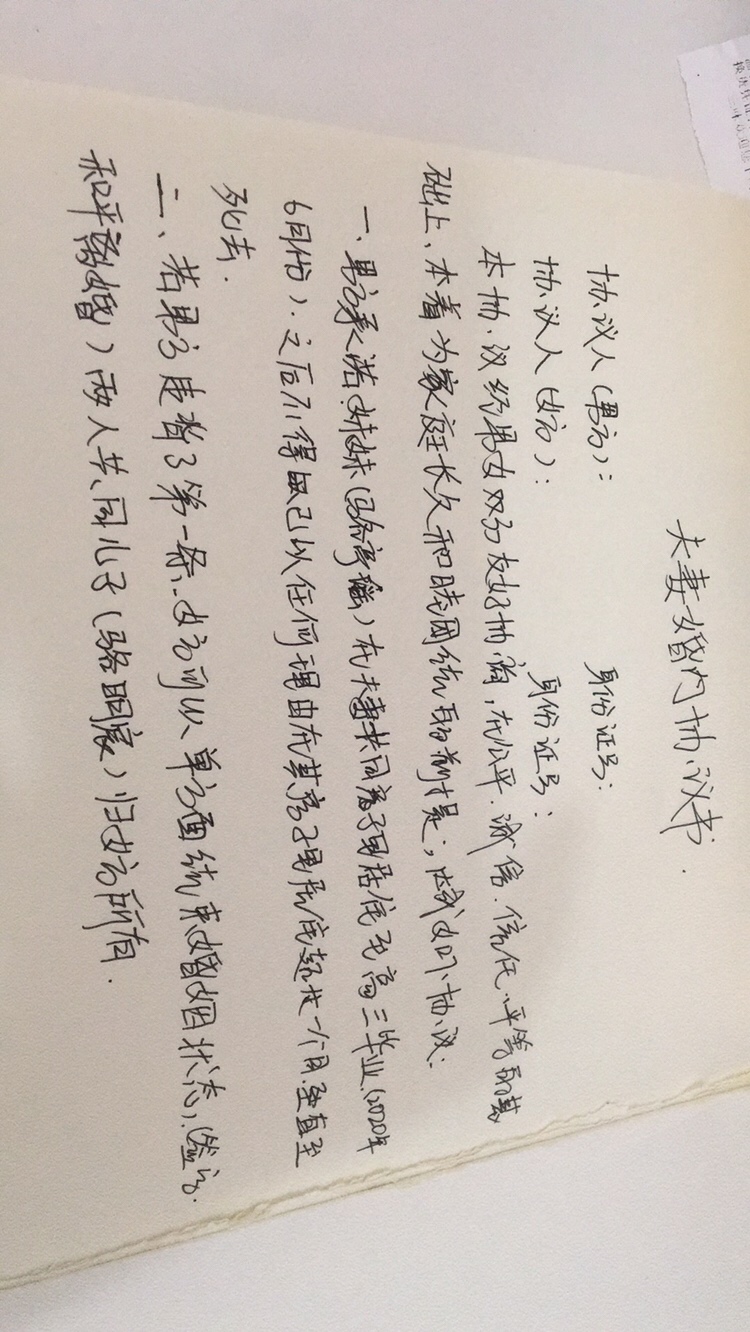 夫妻婚内协议书.
协议人(男方): 身份证号:
协议人(女方): 身份证号:
本协议经男女双方友好协商,在公平.诚信.信任.平等的基
础上、本着为家庭长久和睦团结的前提,达成如下协议:
一、男方承诺.妹妹(骆彦)在夫妻共同房子里居住至高三毕业.(2020年
6月份).之后不得已以任何理由在其房子里居住超过一个月.直至
死去.
二、若男方违背了第一条、女方可以单方面结束婚姻状态,(签订.
和平离婚)两人共同儿子(骆明宸)归女方所有.